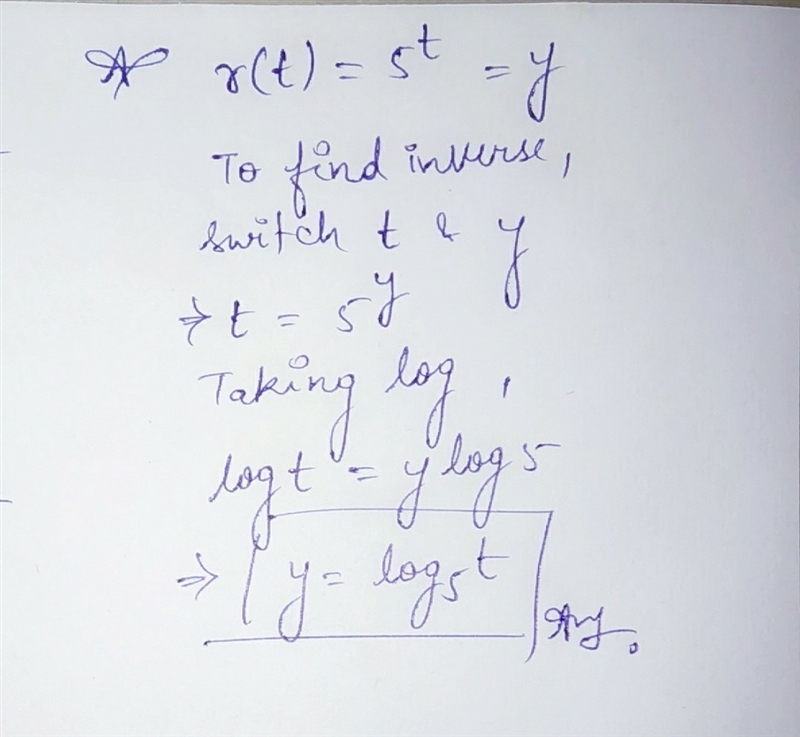 r(t) = 5^t = y
To find inverse,
switch t & y
⇒ t = 5^y
Taking log,
log t = y log 5
⇒ y = log₅t